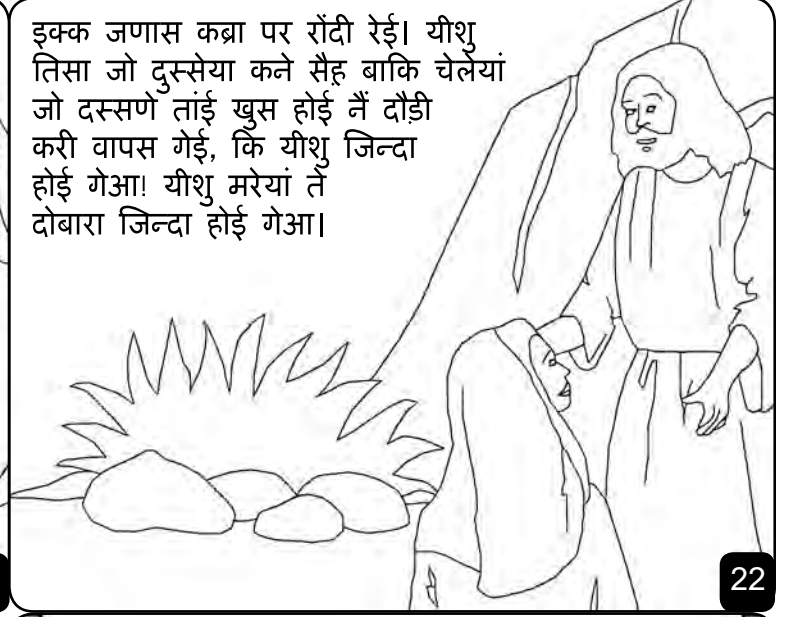 इक्क जणास कब्रा पर रोंदी रेई। यीशु
तिसा जो दुस्सेया कने सैह़ बाकि चेलेयां
जो दस्सणे तांई खुस होई नैं दौड़ी
करी वापस गेई, कि यीशु जिन्दा
होई गेआ! यीशु मरेयां ते
दोबारा जिन्दा होई गेआ।
22